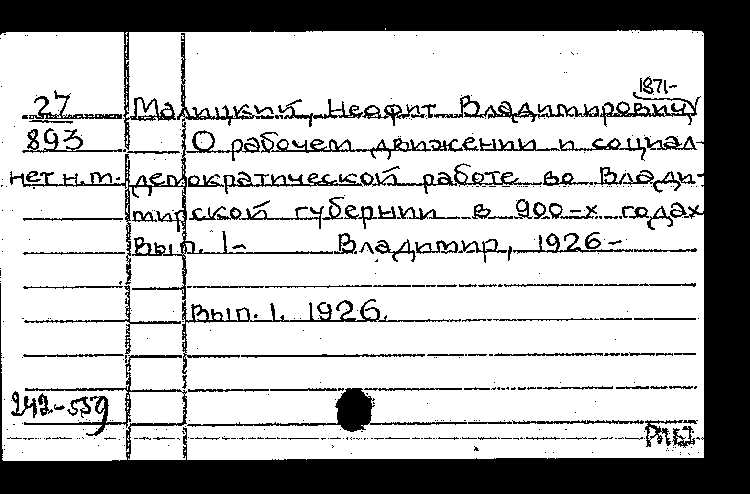 1871-
27 Малицкий, Неофит Владимирович
893 О рабочем движении и социал-
нет н.т. демократической работе во Влади-
мирской губернии в 900-х годах
Вып. 1- Владимир, 1926-
Вып. 1. 1926.
242-559